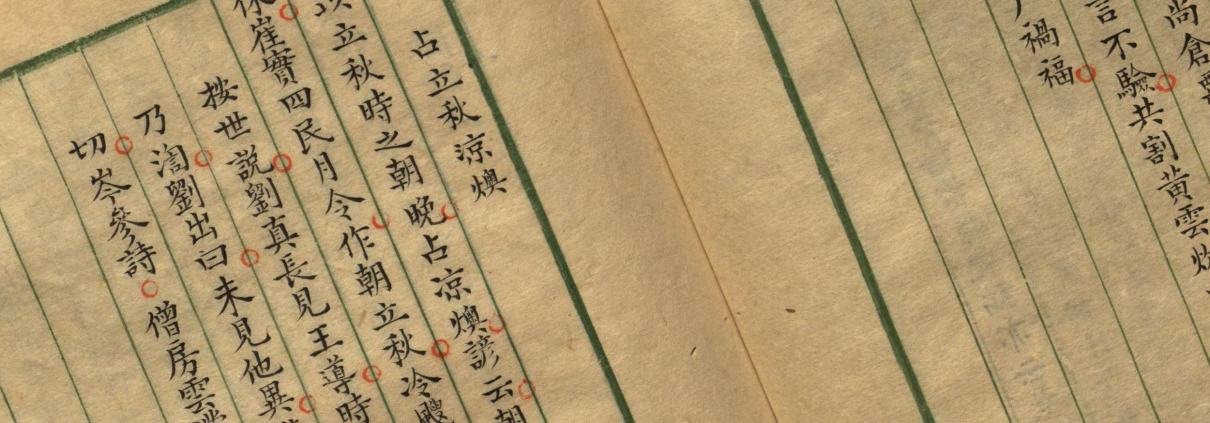 尚倉
言不驗共割黃雲
禍福
占立秋涼燠
立秋時之朝晚占涼燠諺云朝
崔實四民月令作朝立秋冷颼
按世說劉真長見王導時
乃渹劉出曰未見他異
切岑參詩僧房雲